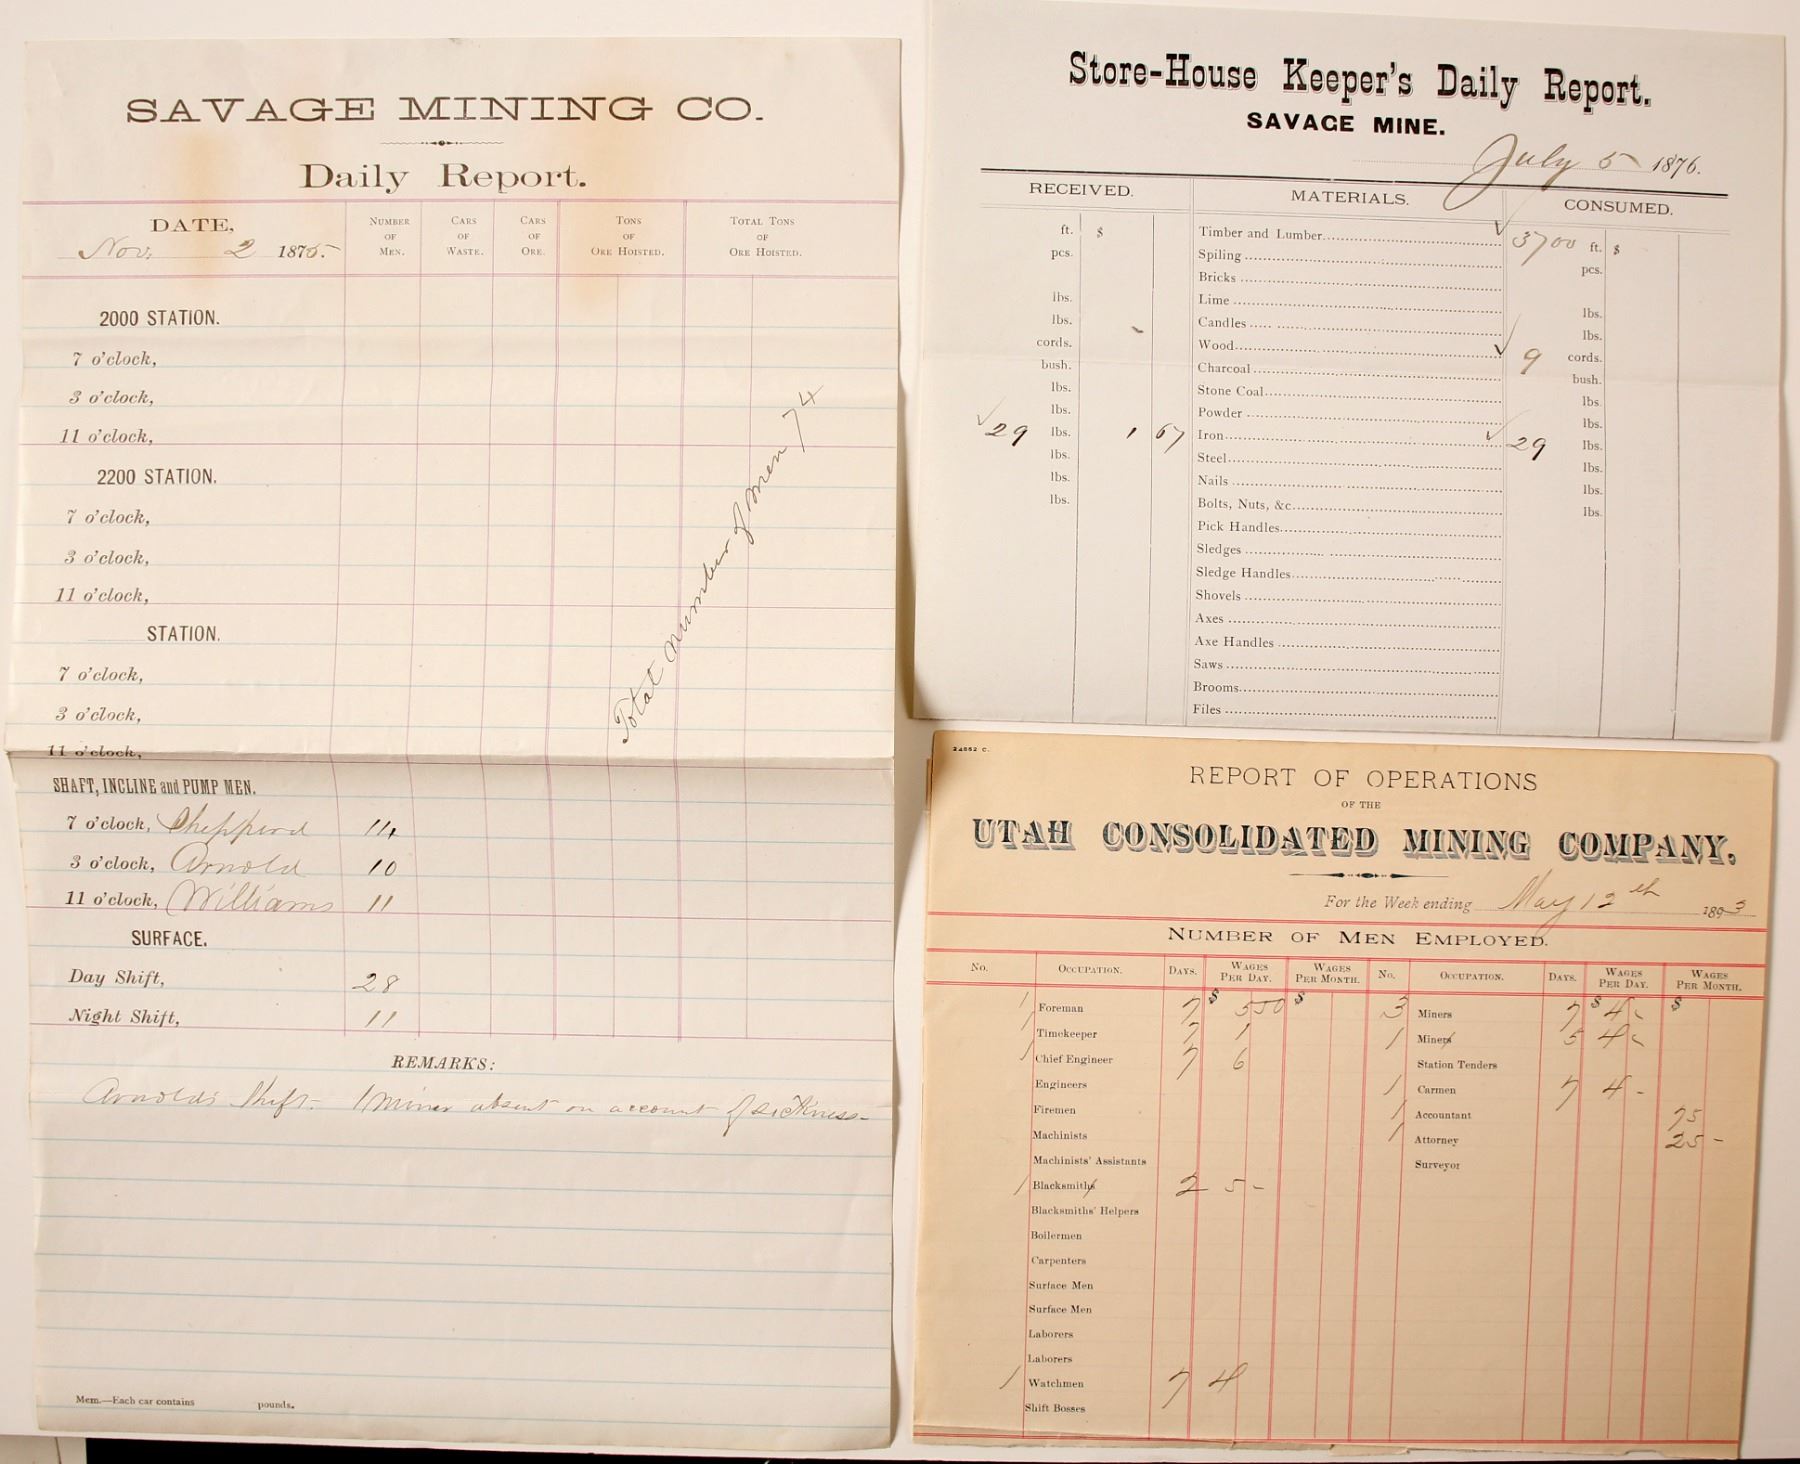 SAVAGE MINING CO.
Daily Report.
DATE, NUMBER OF MEN. CARS OF WASTE. CARS OF ORE. TONS OF ORE HOISTED. TOTAL TONS OF ORE HOISTED.
Nov. 2 1875.
2000 STATION.
7 o'clock,
3 o'clock,
11 o'clock,
2200 STATION.
7 o'clock,
3 o'clock,
11 o'clock,
STATION.
7 o'clock,
3 o'clock,
11 o'clock,
Total number of men 74
SHAFT, INCLINE and PUMP MEN.
7 o'clock, Shepperd 14
3 o'clock, Arnold 10
11 o'clock, Williams 11
SURFACE.
Day Shift, 28
Night Shift, 11
REMARKS:
Arnold's Shift. 1 miner absent on account of sickness—
Mem.—Each car contains pounds.
Store-House Keeper's Daily Report.
SAVAGE MINE.
July 5 1876.
RECEIVED. MATERIALS. CONSUMED.
ft. $ Timber and Lumber 3700 ft. $
pcs. Spiling pcs.
Bricks
lbs. Lime lbs.
lbs. Candles lbs.
cords. Wood 9 cords.
bush. Charcoal bush.
lbs. Stone Coal lbs.
lbs. Powder lbs.
29 lbs. 1 67 Iron 29 lbs.
lbs. Steel lbs.
lbs. Nails lbs.
lbs. Bolts, Nuts, &c. lbs.
Pick Handles
Sledges
Sledge Handles
Shovels
Axes
Axe Handles
Saws
Brooms
Files
24852 C.
REPORT OF OPERATIONS
OF THE
UTAH CONSOLIDATED MINING COMPANY.
For the Week ending May 12th 1893
NUMBER OF MEN EMPLOYED.
No. OCCUPATION. DAYS. WAGES PER DAY. WAGES PER MONTH. No. OCCUPATION. DAYS. WAGES PER DAY. WAGES PER MONTH.
1 Foreman 7 $ 5 50 $ 3 Miners 7 $ 4 - $
1 Timekeeper 7 1 1 Miners 5 4 -
1 Chief Engineer 7 6 Station Tenders
Engineers 1 Carmen 7 4 -
Firemen 1 Accountant 75
Machinists 1 Attorney 25 -
Machinists' Assistants Surveyor
1 Blacksmiths 2 5 -
Blacksmiths' Helpers
Boilermen
Carpenters
Surface Men
Surface Men
Laborers
Laborers
1 Watchmen 7 4
Shift Bosses